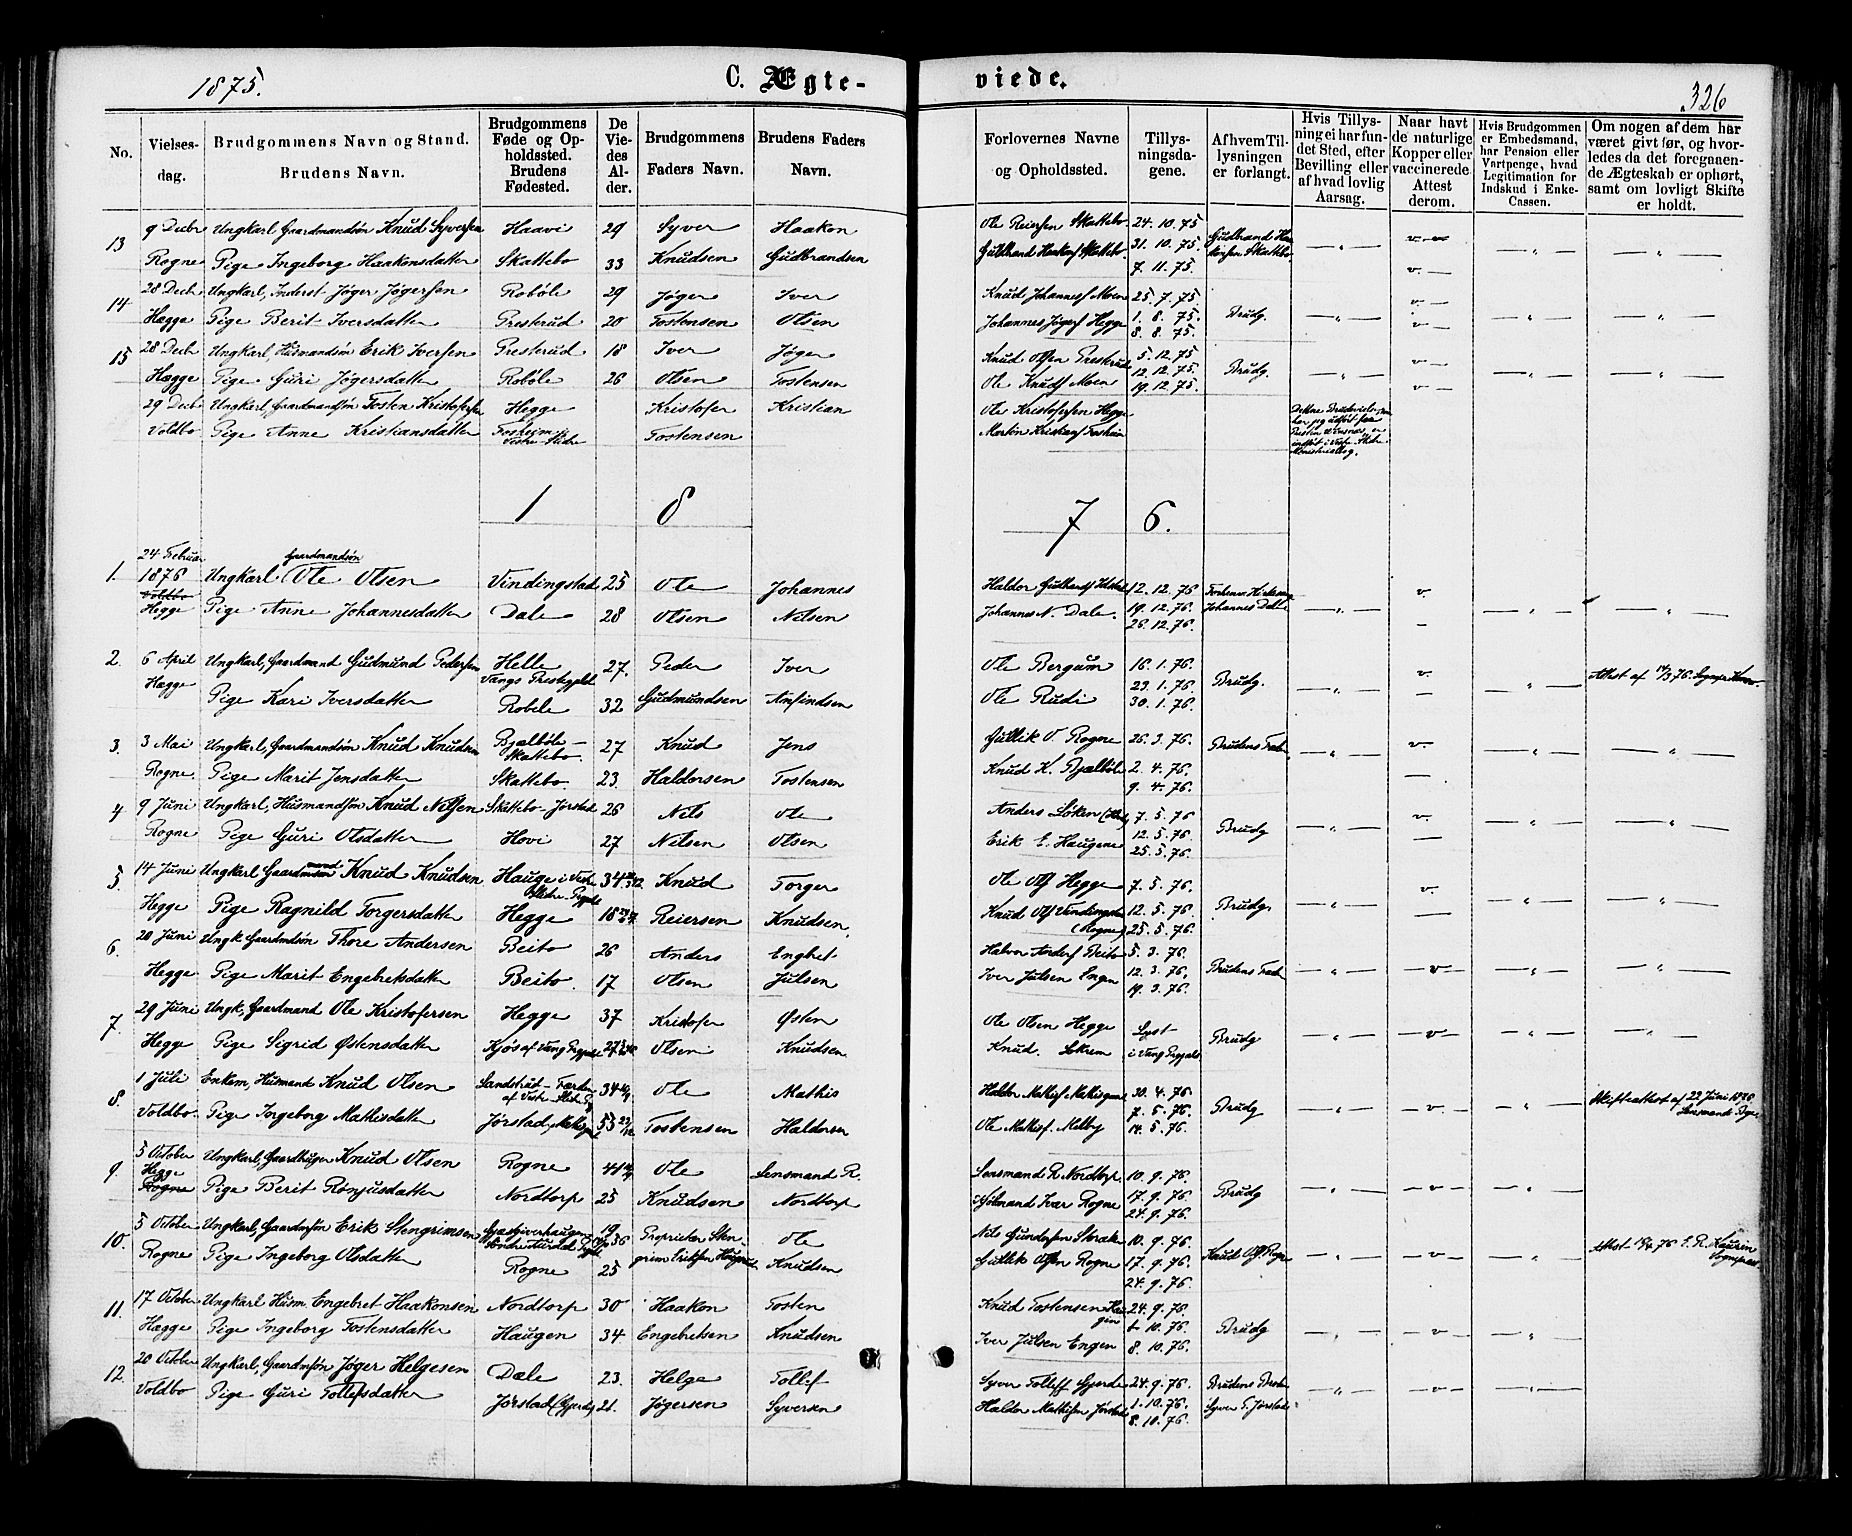 1875.
C. Ægte-
viede.
326
No.
Vielses-
dag.
Brudgommens Navn og Stand.
Brudens Navn.
Brudgommens
Føde og Op-
holdssted.
Brudens
Fødested.
De
Vie-
des
Al-
der.
Brudgommens
Faders Navn.
Brudens Faders
Navn.
Forlovernes Navne
og Opholdssted.
Tillys-
ningsda-
gene.
Af hvem Til-
lysningen
er forlangt.
Hvis Tillys-
ning ei har fun-
det Sted, efter
Bevilling eller
af hvad lovlig
Aarsag.
Naar havt
de naturlige
Kopper eller
vaccinerede.
Attest
derom.
Hvis Brudgommen
er Embedsmand,
har Pension eller
Vartpenge, hvad
Legitimation for
Indskud i Enke-
Cassen.
Om nogen af dem har
været givt før, og hvor-
ledes da det foregaaen-
de Ægteskab er ophørt,
samt om lovligt Skifte
er holdt.
13 9 Decbr Ungkarl Gaardmandsøn Knud Syversen Haavi 29 Syver Haakon Ole Reiersen Skattebo 24. 10. 75
31. 10. 75. Gudbrand Haa-
Rogne Pige Ingeborg Haakonsdatter Skattebo 33 Knudsen Gudbrandsen Gulbrand Haakens Skattebo. 7. 11. 75. Skattebo
14 28 Decb Ungkarl, Inderst Jøger Jøgersen Robøle 29 Jøger Iver Knud Johannesf Moen 25. 7. 75.
1. 8. 75. Brudg.
Hægge Pige Berit Iversdatter Presterud 20 Tostensen Olsen Johannes Jøgersf Hegge 8. 8. 75.
15 28 Decb Ungkarl, Husmandsøn Erik Iversen Presterud 18 Iver Jøger Knud Olsen Presterud 5. 12. 75
12. 12. 75. Brudg.
Hægge Pige Guri Jøgersdatter Robøle 26 Olsen Tostensen Ole Knudsf Moen 19. 12. 75.
29 Decb Ungkarl, Gaardmandsøn Tosten Kristofersen Hegge Kristofer Kristian Ole Kristofersen Hegge
Voldbo Pige Anne Kristiansdatter Fosheim i Vestre Slidre Tostensen
1 8 7 6.
1. 24 Februar
1876 Ungkarl Gaardmandsøn Ole Olsen Vindingstad 25 Ole Johannes Haldor 12. 12. 76
Voldbo
Hegge Pige Anne Johannesdatter Dale 28 Olsen Nilsen Johannes N. Dale. 19. 12. 76. Johannes Dale
26. 12. 76.
2. 6 April Ungkarl, Gaardmand Gudmund Pedersen Helle
Vangs Prestegjeld 27. Peder Iver Ole Bergum 16. 1. 76.
23. 1. 76. Brudg. Attest af 14/3 76.
Hægge Pige Kari Iversdatter Robøle 32 Gudmundsen Anfindsen Ole Rudi 30. 1. 76.
3. 3 Mai Ungkarl, Gaardmandsøn Knud Knudsen Bjælbøle -
Skattebo. 27 Knud Jens Gullik O. Rogne 26. 3. 76. Brudens Fad
Rogne. Pige Marit Jensdatter Skattebo. 23. Haldorsen Tostensen Knud K. Bjælbøle 2. 4. 76.
9. 4. 76.
4 9 Juni Ungkarl, Husmandsøn Knud Nilsen Skattebo - Jørstad 26 Nils Ole Anders Løken 7. 5. 76
12. 5. 76. Brudg
Rogne Pige Guri Olsdatter Hovi 27 Nilsen Olsen Erik E. Haugene 25. 5. 76.
5. 14 Juni Ungkarl Gaardmand Knud Knudsen Hauge i Vestre 34 Knud Torger Ole Olsf Hegge 7. 5. 76.
Hegge Pige Ragnild Torgersdatter Hegge 18 Reiersen Knudsen. Knud Olsf 12. 5. 76. Brudg.
(Rogne) 25. 5. 76.
6. 20 Juni Ungk Gaardmdsøn Thore Andersen Beito 26 Anders Engbet Halvor Andersf Beito 5. 3. 76.
Hegge Pige Marit Engebretsdatter Beito. 17 Olsen Julsen Iver Julsen Engen 12. 3. 76. Brudens Fad
19. 3. 76.
7. 29 Juni Ungk, Gaardmand Ole Kristofersen Hegge 37 Kristofer Østen Ole Olsen Hegge Lyst
Hegge Pige Sigrid Østensdatter Kjøs af Vang 27 Olsen Knudsen Knud. Løkren i Vang Brudg
8. 1 Juli Enkem, Husmand Knud Olsen Sandstrud - 34 Ole Mathis Haldor Mathisf 30. 4. 76
7. 5. 76. Brudg Skifteattest af 22 Juni 1876
Voldbo. Pige Ingeborg Mathisdatter Jørstad 53 Tostensen Haldorsen Ole Mathisf Melby 14. 5. 76.
9. 5 October Ungkarl, Knud Olsen Rogne 41 Ole Lensmand R. Lensmand R. Nordtorp 10. 9. 76.
Hegge
Rogne Pige Berit Ronjusdatter Nordtorp 25 Knudsen Nordtorp Ivar Rogne 17. 9. 76. Brudg
24. 9. 76.
10. 5 October Ungkarl, Erik Stengrimsen 36 Proprietær Sten- Ole Nils Gundersen 10. 9. 76.
Rogne Pige Ingeborg Olsdatter Rogne 25 grim Eriksen Knudsen Gullik Olsen Rogne 17. 9. 76. Knud Olsf Rogne
24. 9. 76.
11. 17 October Ungkarl Husm. Engebret Haakonsen Nordtorp 30 Haakon Tosten Knud Tostensen Hau-
gen 24. 9. 76.
Hægge Pige Ingeborg Tostensdatter Haugen 34 Engebretsen Knudsen Iver Julsen Engen 10. 76. Brudg
8. 10. 76.
12. 20 October Ungkarl, Gaardmsøn Jøger Helgesen Dale 23. Helge Tollef Syver Tolleff Gjerde 24. 9. 76. Brudens
Voldbo Pige Guri Tollefsdatter Jørstad (Gjerde) 21. Jøgersen Syversen Haldor Mathisen Jørstad 1. 10. 76. Syver T. Jørstad
8. 10. 76.